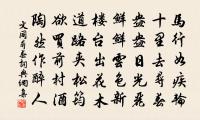 馬行如疾輪
十里去尋春
盎盎日光
鮮鮮雲色新
樓台出花木
道路夾松筠
欲買前村酒
陶然作醉人
文同尋春詞典網集